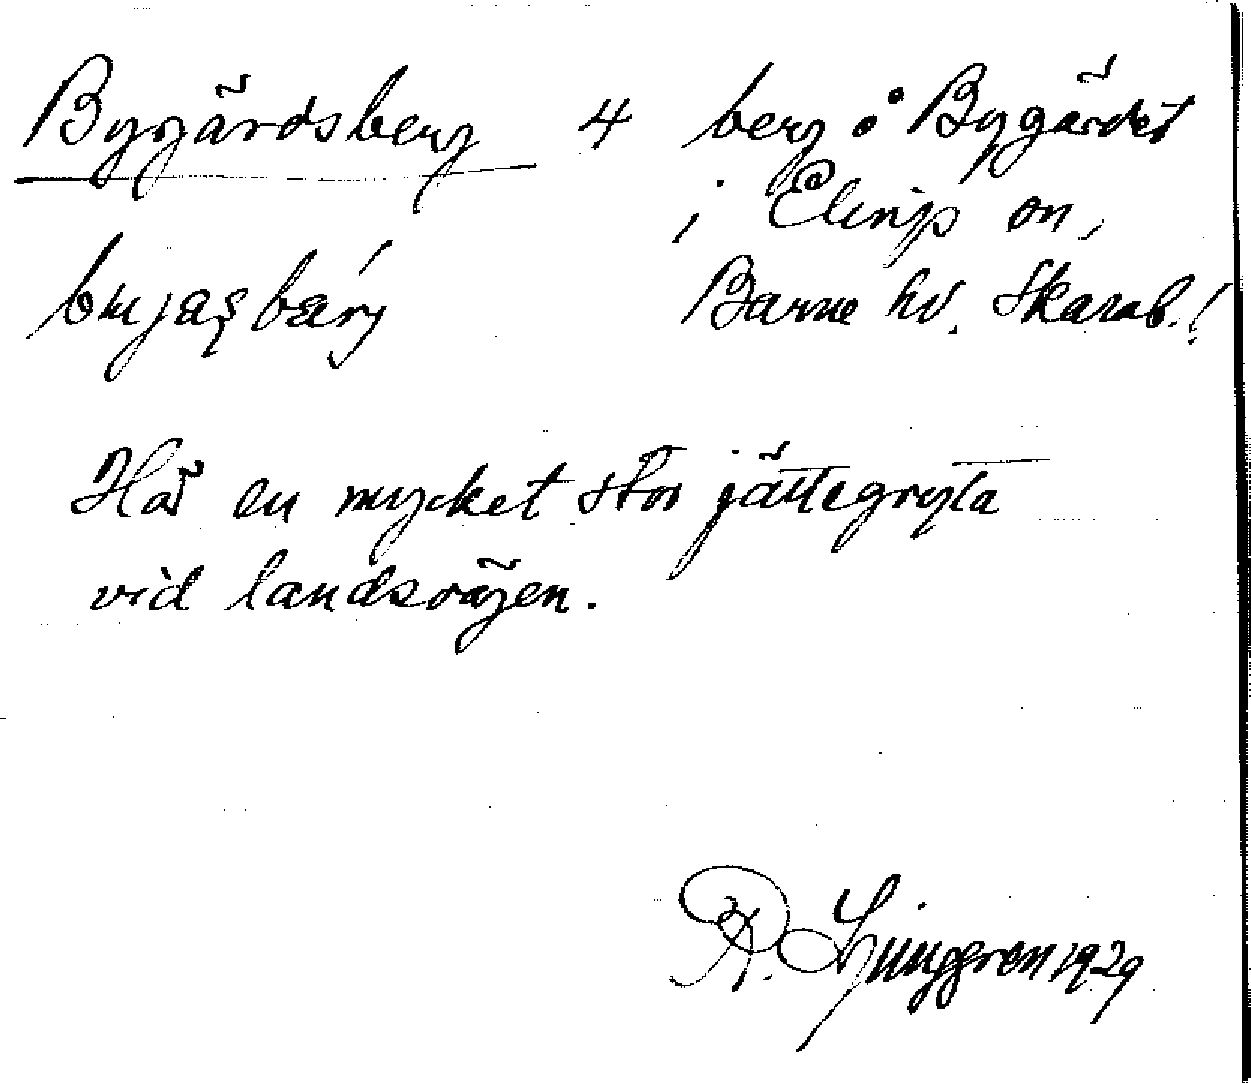 Bygärdsberg 4 berg å Bygärdet
i Elings sn,
Barne hd. Skarab. l
Här en mycket stor jättegryta
vid landsvägen.
R. Ljunggren 1929